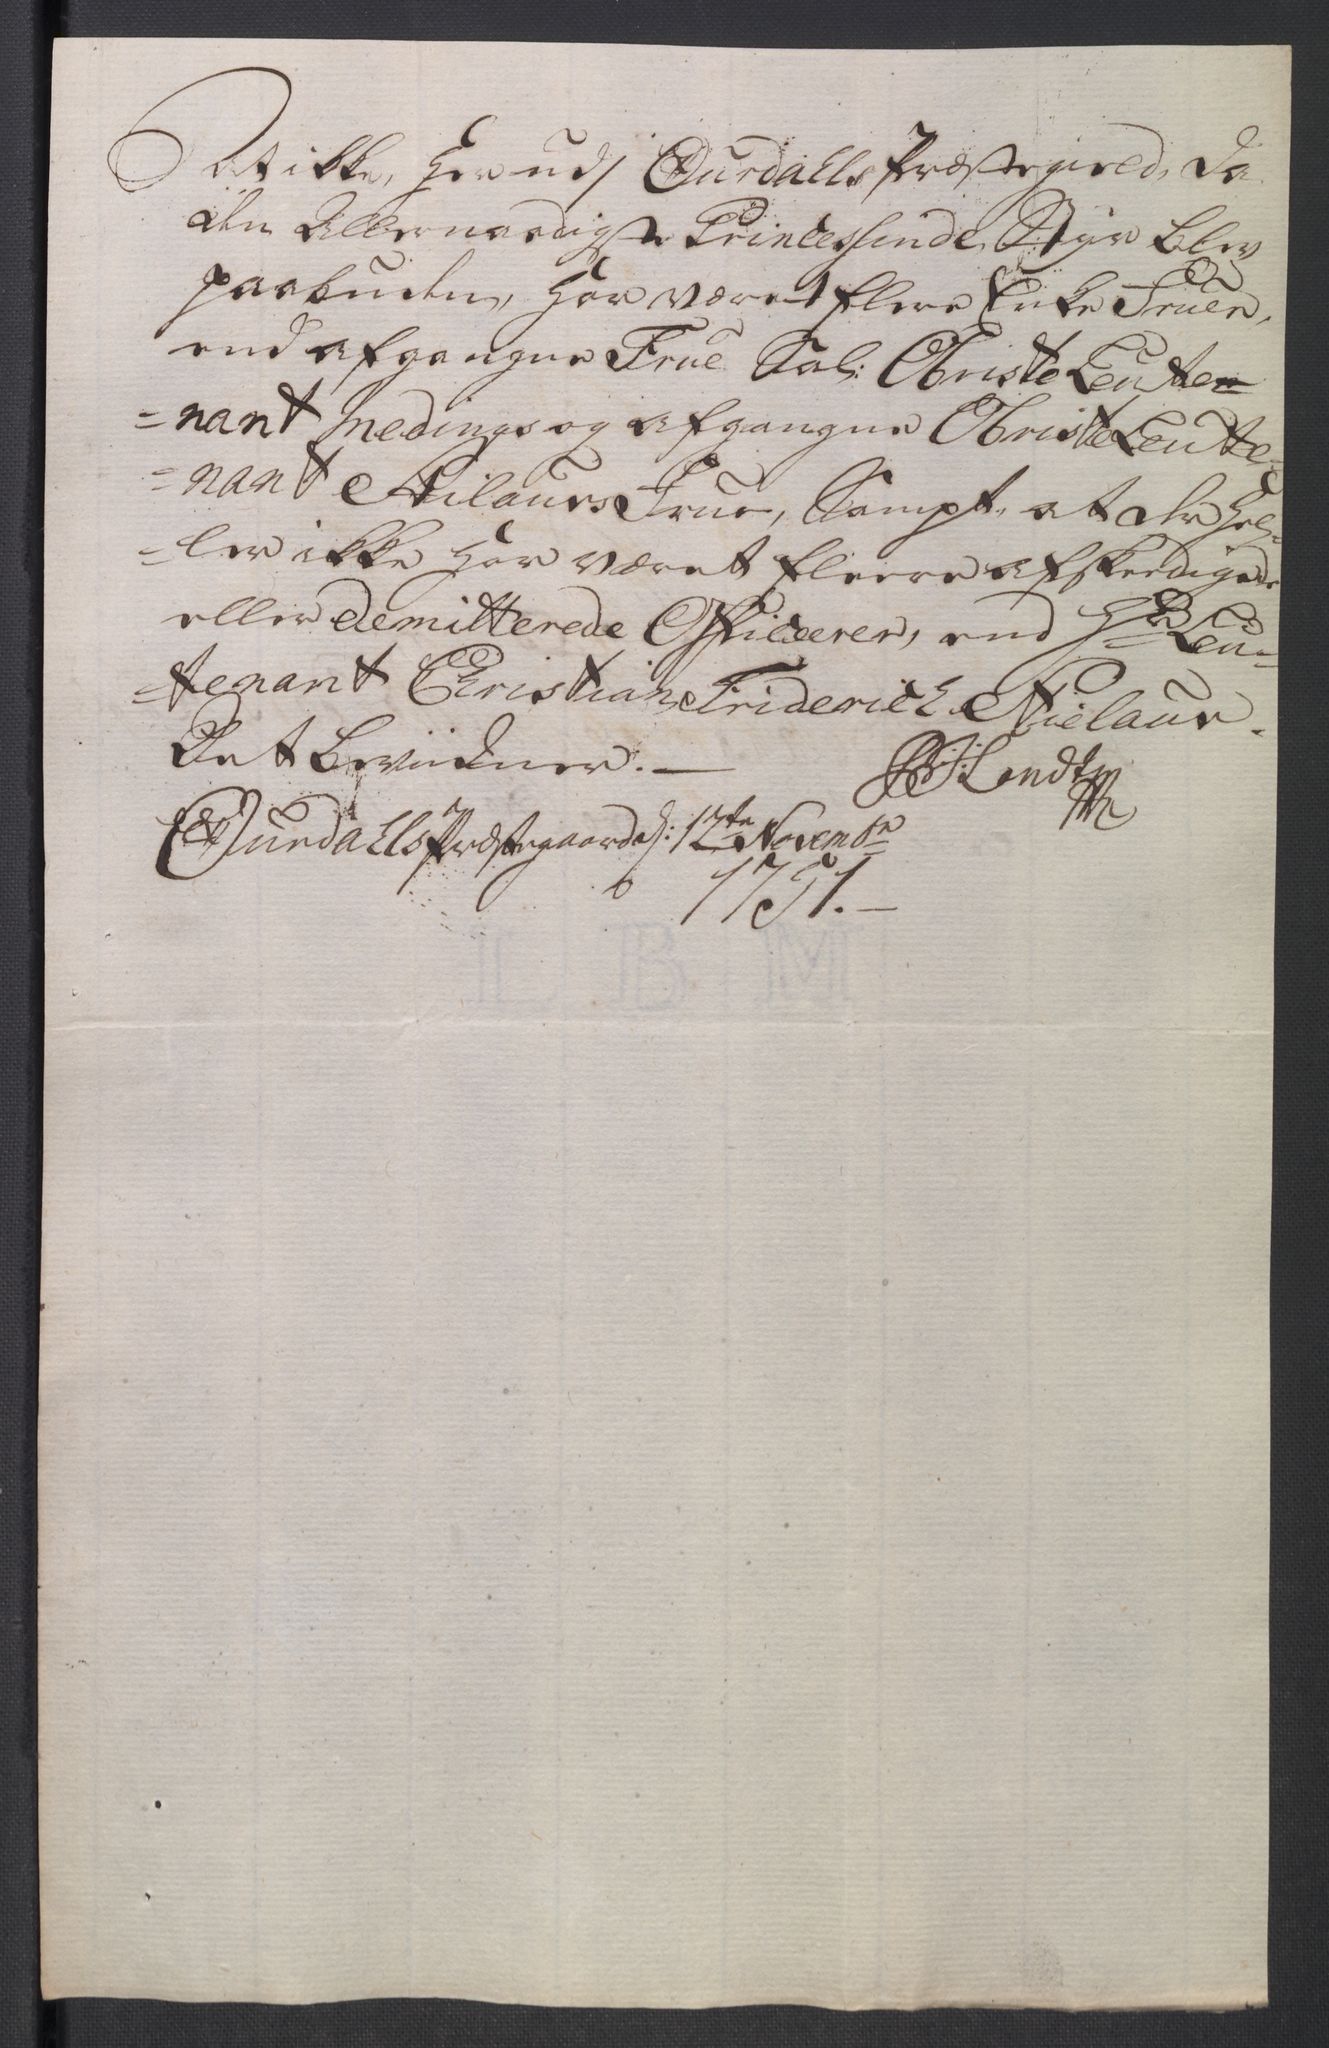 At ikke, her udj Ourdahls Præstegield, da
den Allernaadigste Princessinde Styr blev
paabuden, har været flere Enke Fruer,
end afgangne Frue Sal: Obriste Leuten=
=nant Medings og afgangne Obriste Leutte=
=nant Nilaurs Frue, Sampt, at der hel=
=ler ikke har været fleere afskeedigede
eller demitterede Officerer, end Hr Leu=
=tenant Christian Friderich Nielaur.
Det bevidner. —
Ourdahls Præstegaard d: 12te Novembr
1751. —
L B M